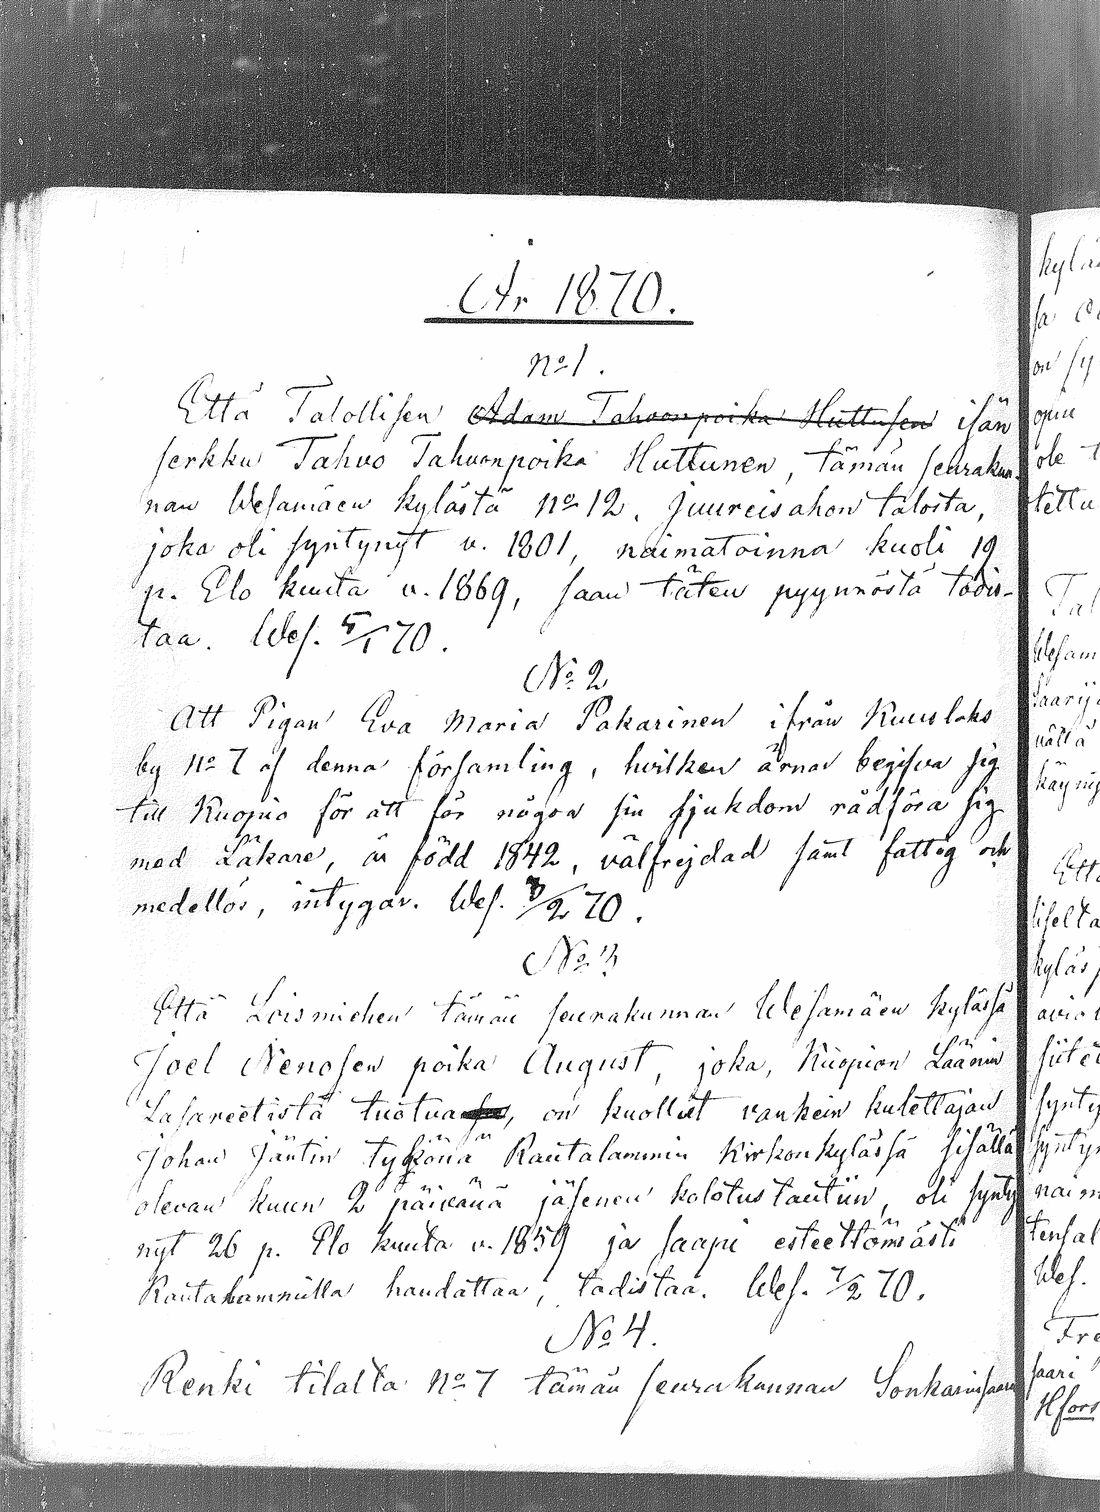 År 1870.
No 1.
Että Talollisen Adam Tahvonpoika Huttusen isän
serkku Tahvo Tahvonpoika Huttunen, tämän seurakun-
nan Wesamäen kylästä No 12. Juureisahon talosta,
joka oli syntynyt v. 1801, naimatoinna kuoli 19
p. Elo kuuta v. 1869, saan täten pyynnöstä todis-
taa. Wes. 5/1 70.
No 2
Att Pigan Eva Maria Pakarinen ifrån Kuuslaks
by No 7 af denna församling, hvilken ärnar begifva sig
till Kuopio för att för någon sin sjukdom rådföra sig
med Läkare, är född 1842, välfrejdad samt fattig och
medellös, intygar. Wes. 3/2 70.
No 3
Että Loismiehen tämän seurakunnan Wesamäen kylässä
Joel Nenosen poika August, joka, Kuopion Läänin
Lasareetista tuotua, on kuollut vankein kulettajan
Johan Jäntin tykönä Rautalammin Kirkonkylässä sisällä
olevan kuun 2 päivänä jäsenen kolotus tautiin, oli synty
nyt 26 p. Elo kuuta v. 1859 ja saapi esteettömästi
Rautalammilla haudattaa, todistaa. Wes. 7/2 70.
No 4.
Renki tilalta No 7 tämän seurakunnan Sonkarinsaari
kylä
on sy
ole t
tettu
Tal
Wesam
Saarij
vältä
käynyt
Että
kyläs
synty
syntyn
naim
Wes.
Fre
saari
Hfors